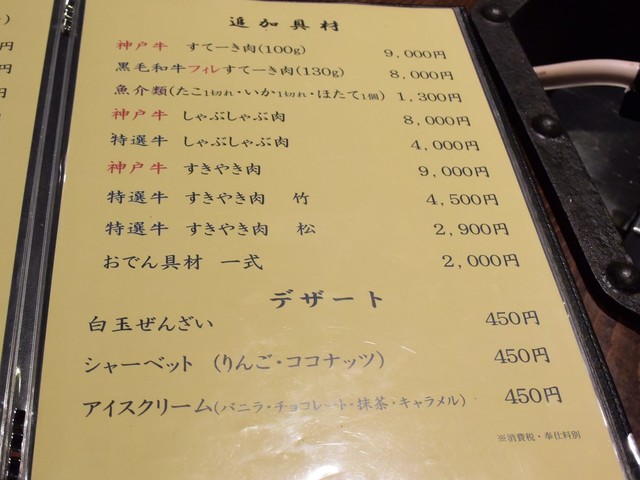 追加具材
神戸牛 すてーき肉(100g) 9,000円
黒毛和牛フィレすてーき肉(130g) 8,000円
魚介類(たこ1切れ・いか1切れ・ほたて1個) 1,300円
神戸牛 しゃぶしゃぶ肉 8,000円
特選牛 しゃぶしゃぶ肉 4,000円
神戸牛 すきやき肉 9,000円
特選牛 すきやき肉 竹 4,500円
特選牛 すきやき肉 松 2,900円
おでん具材 一式 2,000円
デザート
白玉ぜんざい 450円
シャーベット (りんご・ココナッツ) 450円
アイスクリーム(バニラ・チョコレート・抹茶・キャラメル) 450円
※消費税・奉仕料別